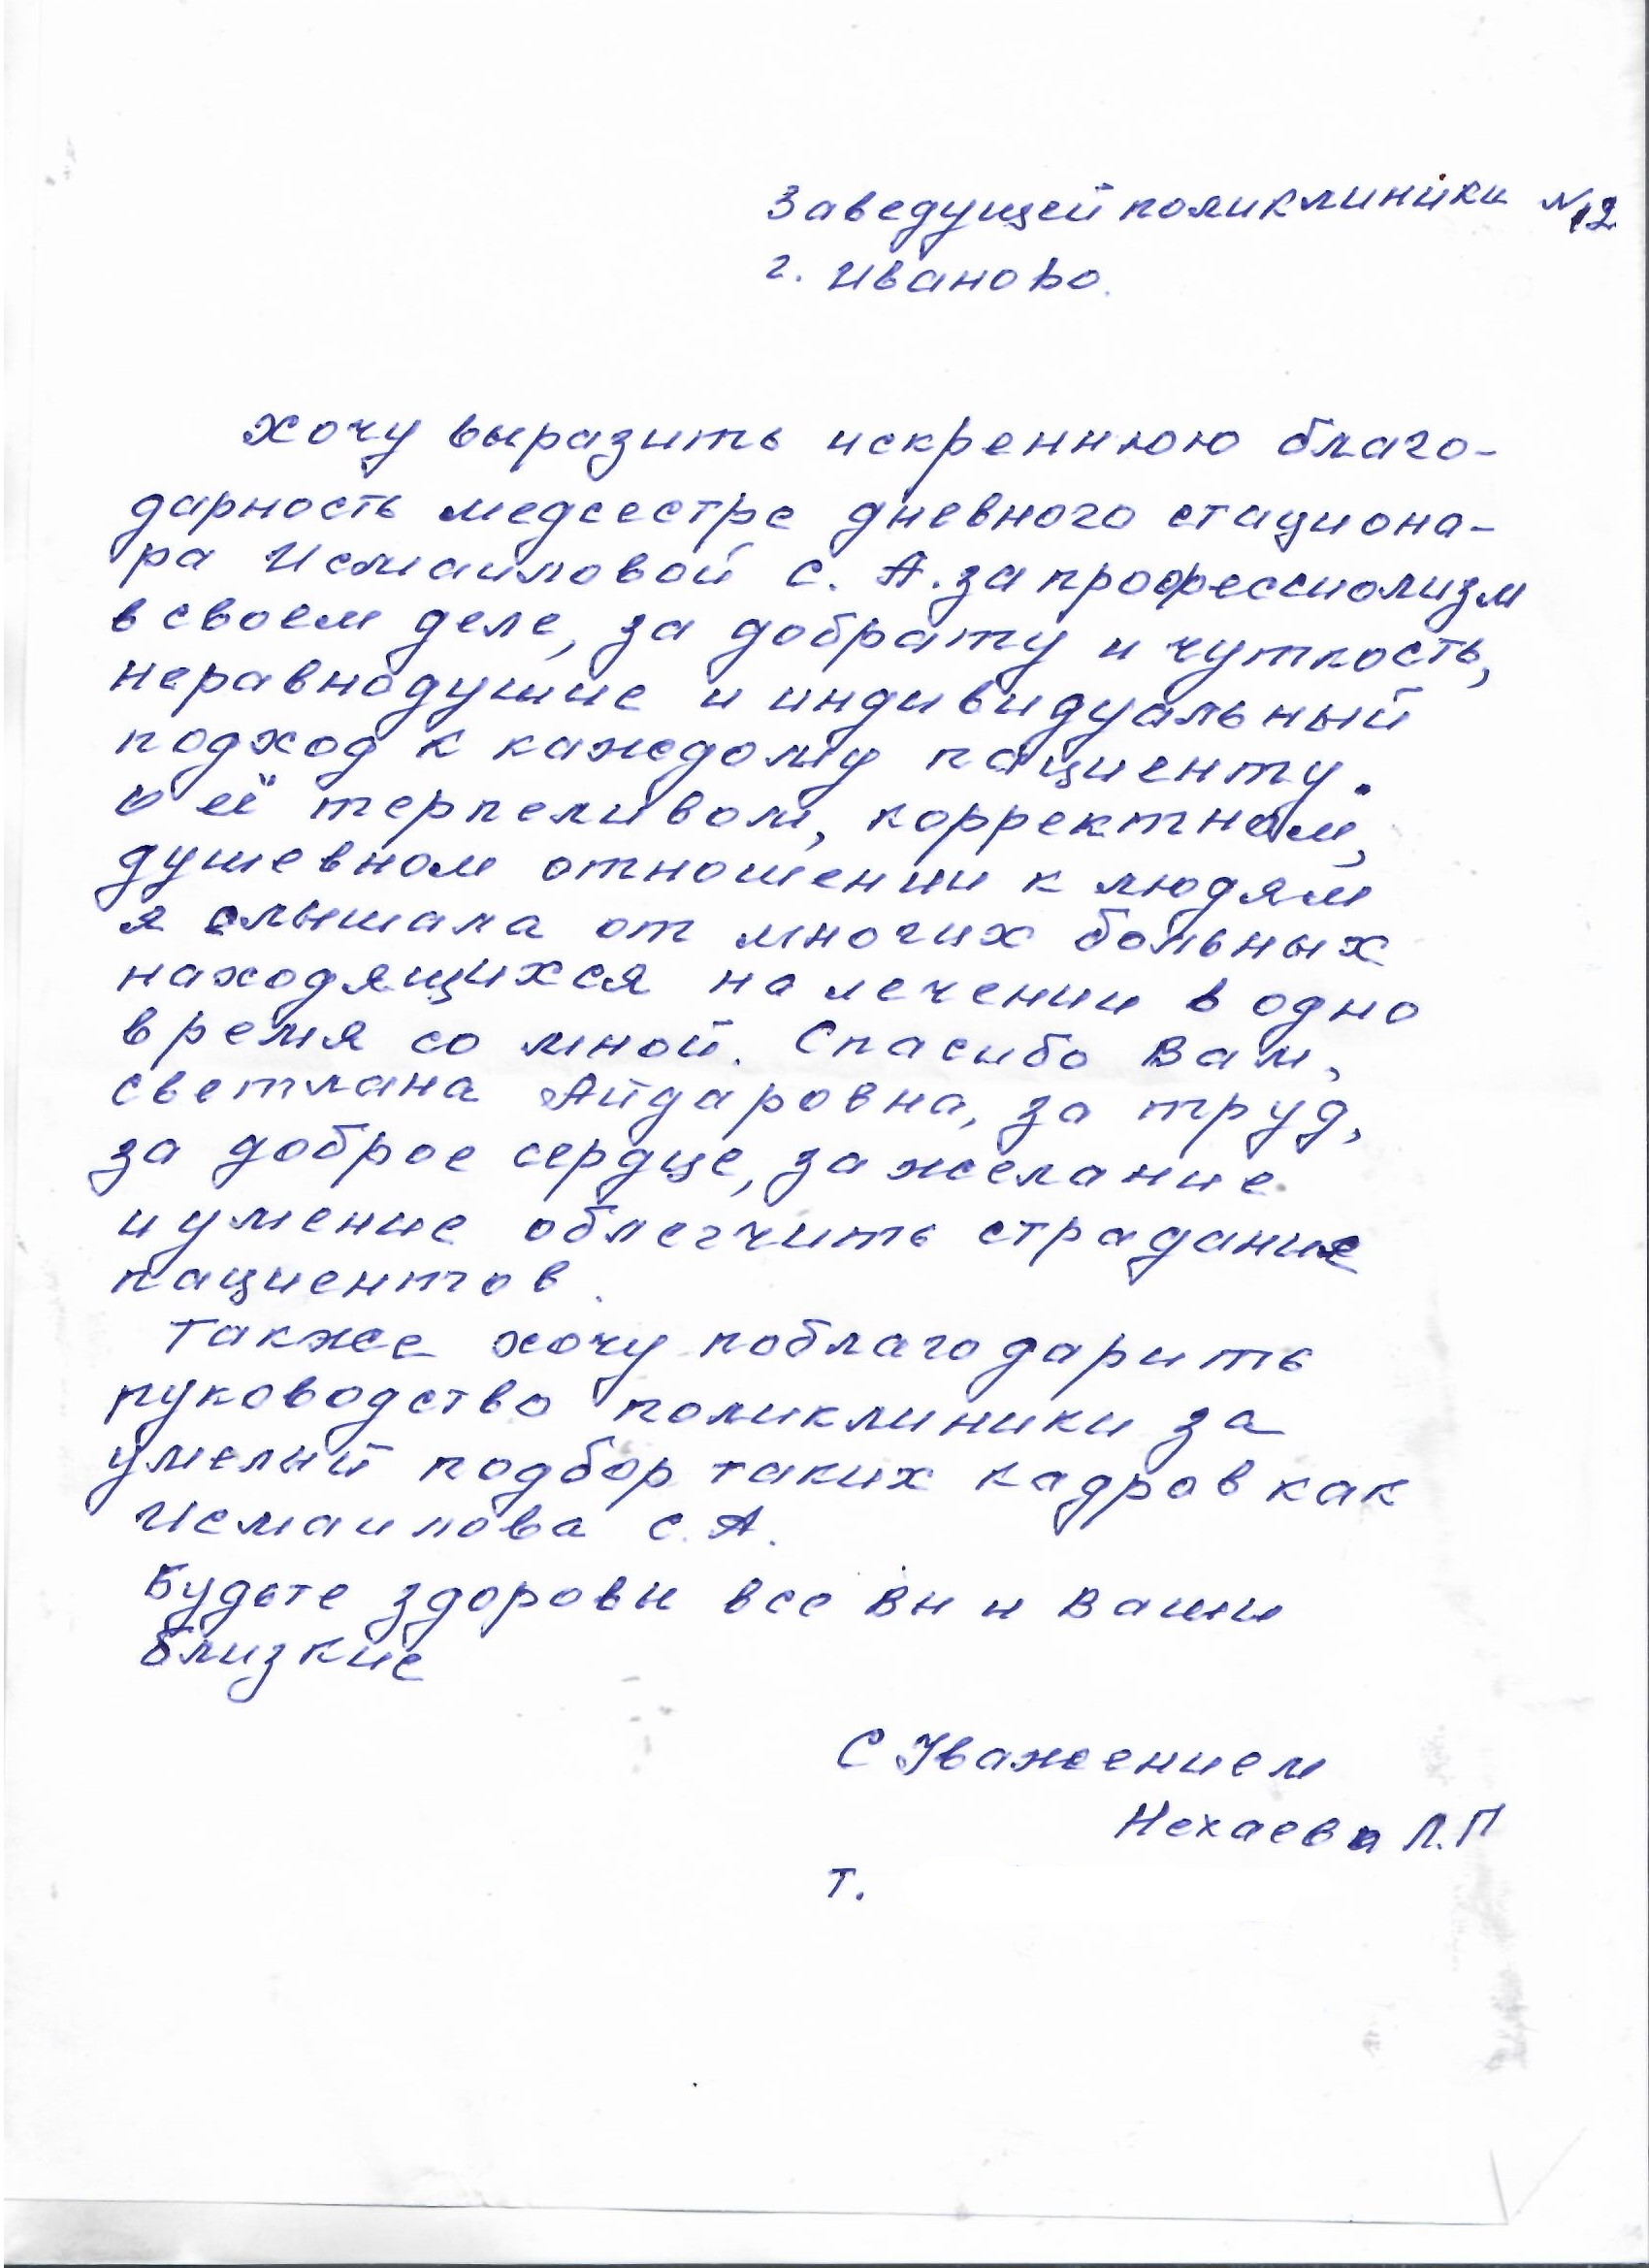 Заведущей поликлиники №12
г. Иваново.
Хочу выразить искреннюю благо-
дарность медсестре дневного стациона-
ра Исмаиловой С. А. за профессиолизм
в своем деле, за доброту и чуткость,
неравнодушие и индивидуальный
подход к каждому пациенту.
О её терпеливом, корректном,
душевном отношении к людям
я слышала от многих больных
находящихся на лечении в одно
время со мной. Спасибо Вам,
Светлана Айдаровна, за труд,
за доброе сердце, за желание
и умение облегчить страдание
пациентов.
Также хочу поблагодарить
руководство поликлиники за
умелый подбор таких кадров как
Исмаилова С. А.
Будьте здоровы все Вы и Ваши
близкие
С Уважением
Нехаева Л.П
Т.